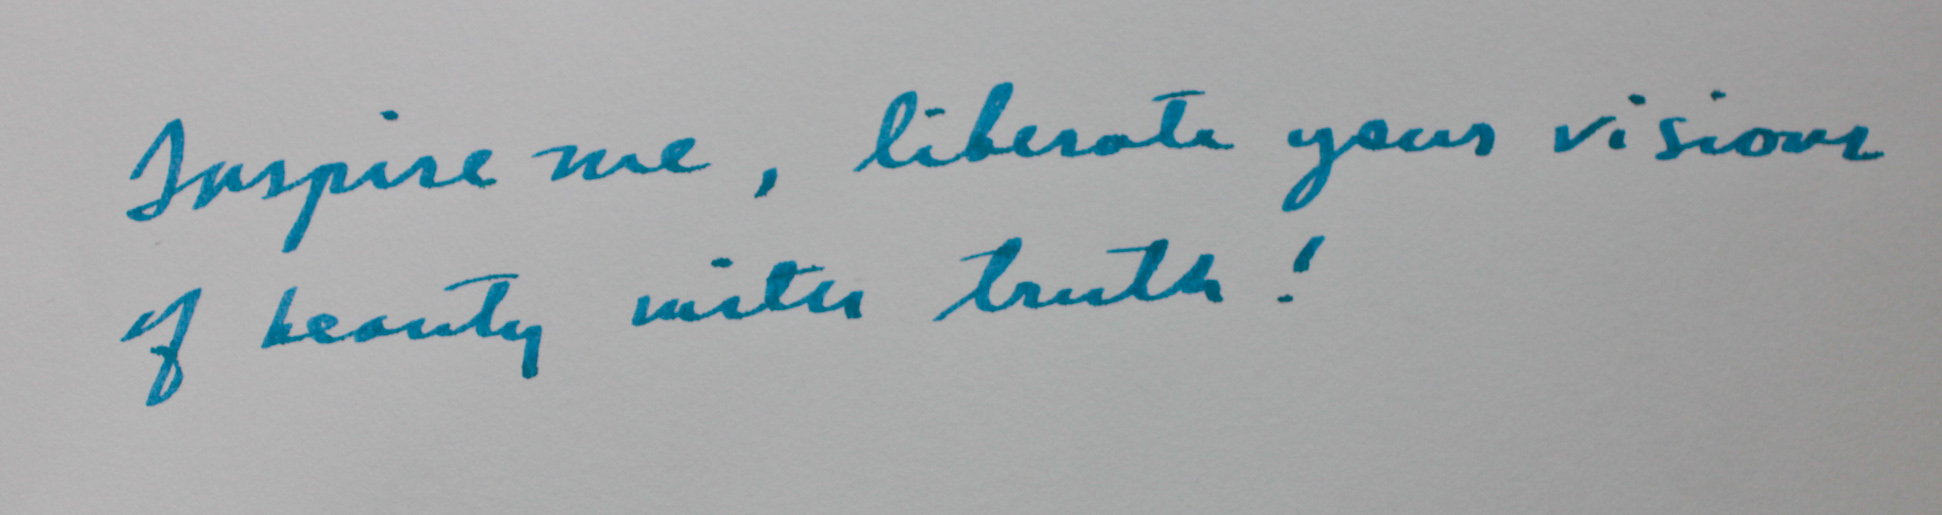 Inspire me, liberate your visions
of beauty with truth!